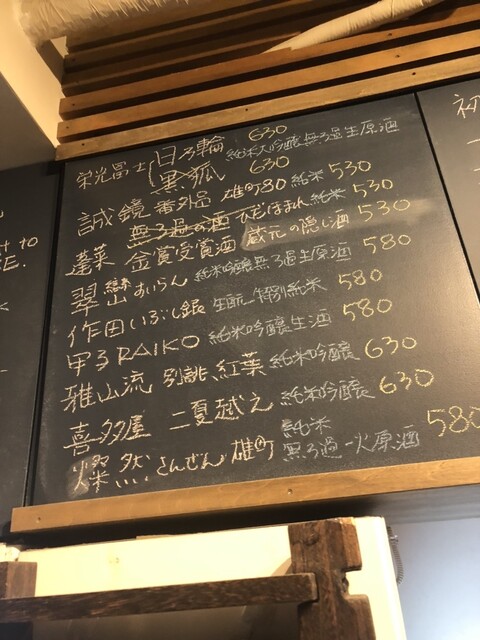 栄光冨士 日乃輪 630 純米大吟醸無ろ過生原酒
黒狐 630
誠鏡 番外品 雄町 580 純米 530
無ろ過の酒 ひだほまれ 純米 530
蓬莱 金賞受賞酒 蔵元の隠し酒 530
翠巒 おいらん 純米吟醸無ろ過生原酒 580
作田 いぶし銀 生酛特別純米 580
甲子 RAIKO 純米吟醸生酒 580
雅山流 別誂 紅葉 純米吟醸 630
喜多屋 二夏越え 純米吟醸 630
燦然 さんぜん 雄町 純米 無ろ過一火原酒 580
初
t to
E.